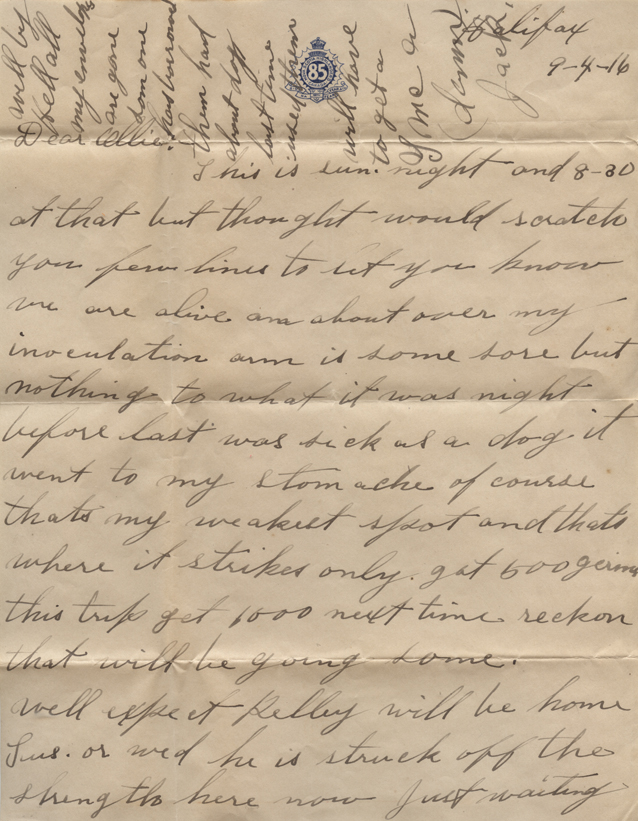 Halifax
9-4-16
85
Dear Ollie:
This is sun. night and 8-30
at that but thought would scratch
you few lines to let you know
we are alive am about over my
inoculation arm is some sore but
nothing to what it was night
before last was sick as a dog it
went to my stomache of course
thats my weakest spot and thats
where it strikes only. got 500 germs
this trip get 1000 next time reckon
that will be going some.
well expect Kelley will be home
Tues. or wed he is struck off the
strength here now Just waiting
well by
Hell all
my envelops
are gone
som one
has burrowed
them had
about doz
last time
used them
will have
to get a
some
Jack